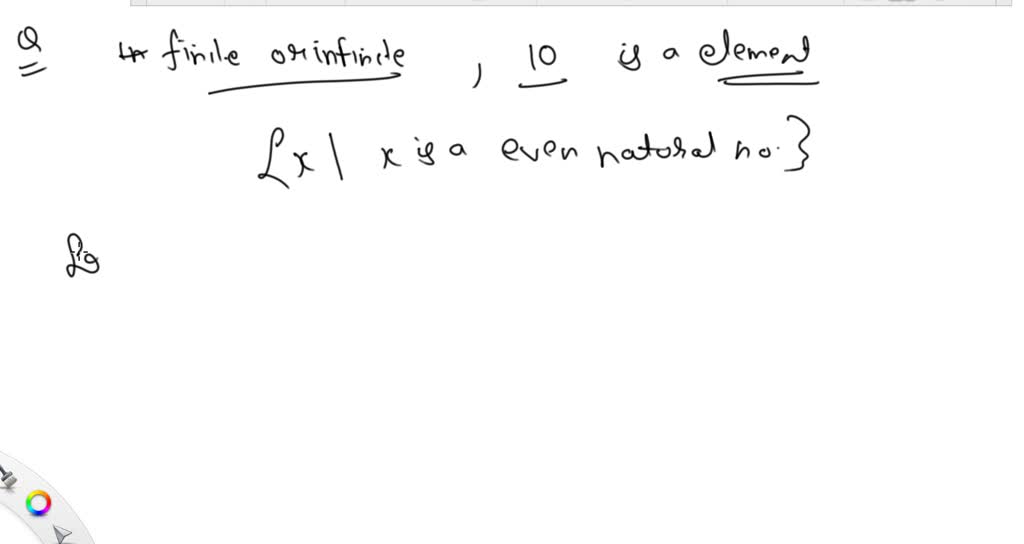 Q finile or infinite , 10 is a element
{x | x is a even natural no.}